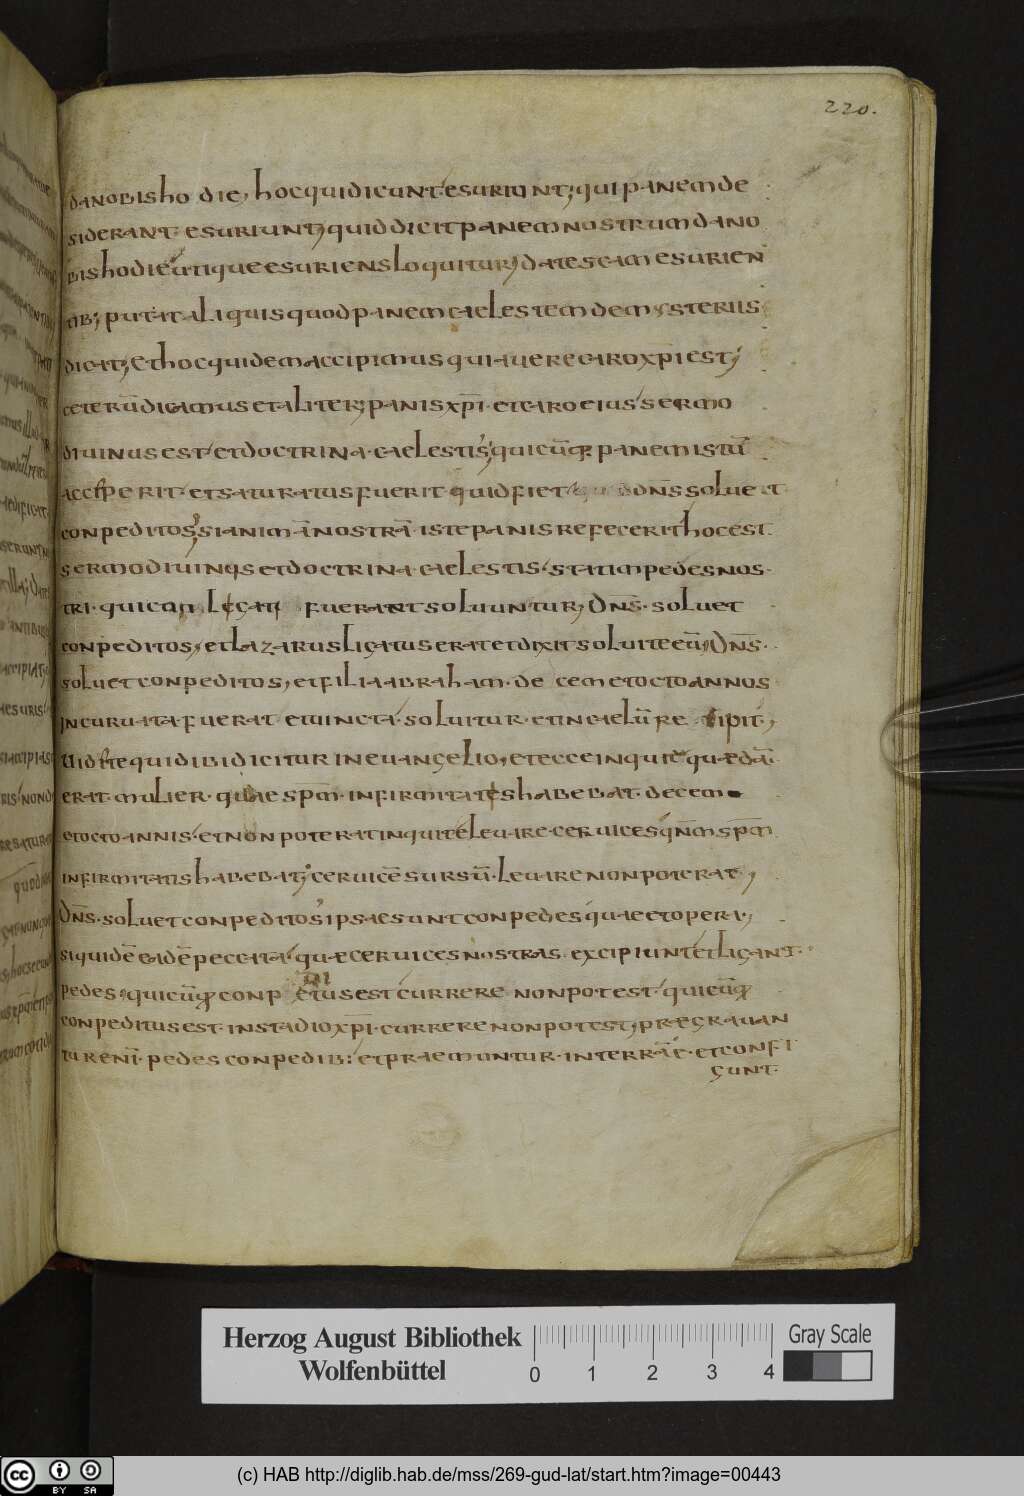 220.
da nobis hodie, hoc qui dicunt esuriunt; qui panem de
siderant esuriunt; quid dicit panem nostrum da no
bis hodie utique esuriens loquitur; dat escam esurien
tib; putet aliquis quod panem caelestem de mysteriis
dicat; et hoc quidem accipimus quia uere caro xp̄i est;
ceterū dicamus et aliter; panis xp̄i et caro eius sermo
diuinus est et doctrina caelestis; quicūq; panem istū
acceperit et saturatus fuerit quid fiet dn̄s soluet
conpeditos; si animā nostrā iste panis refecerit hoc est
sermo diuinus et doctrina caelestis statim pedes nos
tri qui fuerant soluuntur; Dn̄s soluet
conpeditos, et lazarus ligatus erat et dixit soluite eū; Dn̄s
soluet conpeditos, et filia abraham decem et octo annos
incuruata fuerat et uincta soluitur et in caelū recipit;
Uidete quid ibi dicitur in euangelio, et ecce inquit quædā
erat mulier quae sp̄m infirmitatis habebat decem
et octo annis et non poterat inquit eleuare ceruices qn̄m sp̄m
infirmitatis habebat; ceruicē sursū leuare non poterat;
Dn̄s soluet conpeditos; ipsae sunt conpedes quae et opera;
siquidē eadē peccata quæ ceruices nostras excipiunt et ligant
pedes quicūq; conpeditus est currere non potest quicūq;
conpeditus est in stadio xp̄i currere non potest; prægrauan
tur eni pedes conpedib; et praemuntur in terrā et confi
gunt
Herzog August Bibliothek
Wolfenbüttel
0 1 2 3 4
Gray Scale
cc BY SA
(c) HAB http://diglib.hab.de/mss/269-gud-lat/start.htm?image=00443